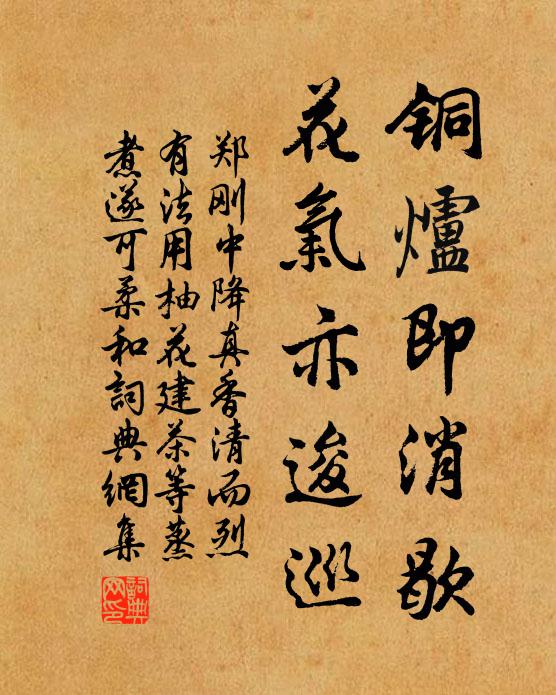 铜爐即消歇
花氣亦逡巡
郑刚中降真香清而烈
有法用柚花建茶等蒸
煮遂可柔和詞典網集
詞典网印